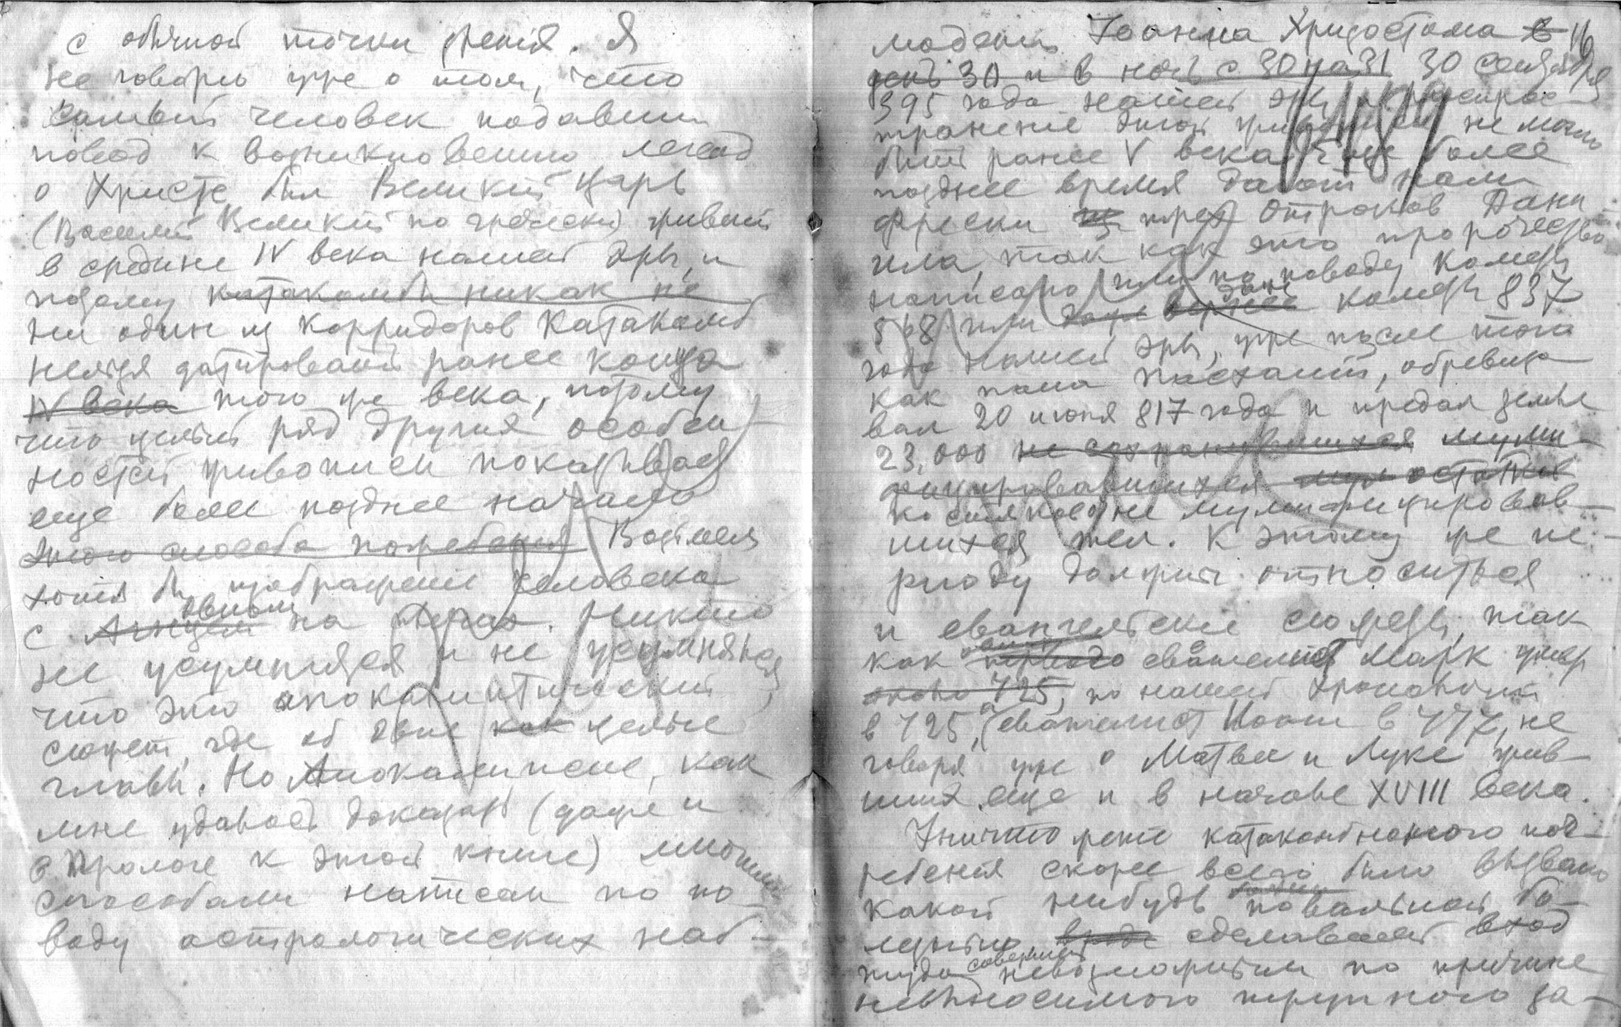 с обычной точки зрения. Я
не говорю уже о том, что
самый человек подавший
повод к возникновению легенд
о Христе был Великий Царь
(Василий Великий по гречески) живший
в средине IV века нашей эры, и
потому катакомбы никак не
ни один из корридоров Катакомб
нельзя датировать ранее конца
IV века того же века, потому
что целый ряд других особен-
ностей живописи показывает
еще более позднее начало
этого способа погребения Возьмем
хотя бы изображение человека
с Агнцем овном на плечах. Никто
не усумнился и не усумнится
что это апокалиптический
сюжет, где об овне как целые
главы. Но Апокалипсис, как
мне удалось доказать (даже и
в Прологе к этой книге) многими
способами написан по по-
воду астрологических наб-
16
людений Иоанна Хризостома в
день 30 и в ночь с 30 на 31 30 сентября
395 года нашей эры и распрос-
транение этой живописи не могло
быть ранее V века. Еще более
позднее время дают нам
фрески из трех отроков Дани-
ила, так как это пророчество
написано или по поводу кометы
568 или даже кометы 837
года нашей эры, уже после того
как папа Пасхалий, обревизо
вал 20 июля 817 года и предал земле
23,000 не сохранившихся мумии-
фицировавшихся остатков
но мумифицировав-
шихся тел. К этому же пе-
риоду должны относиться
и евангельские сюжеты, так
как евангелист Марк умер
около 725, по нашей хронологии
в 725, а евангелист Иоанн в 777, не
говоря уже о Матвее и Луке жив-
ших еще и в начале XVIII века.
Уничтожение катакомбного пог-
ребения скорее всего было вызвано
какой нибудь повальной бо-
лезнью, вроде сделавшей вход
туда совершенно невозможным по причине
невыносимого трупного за-